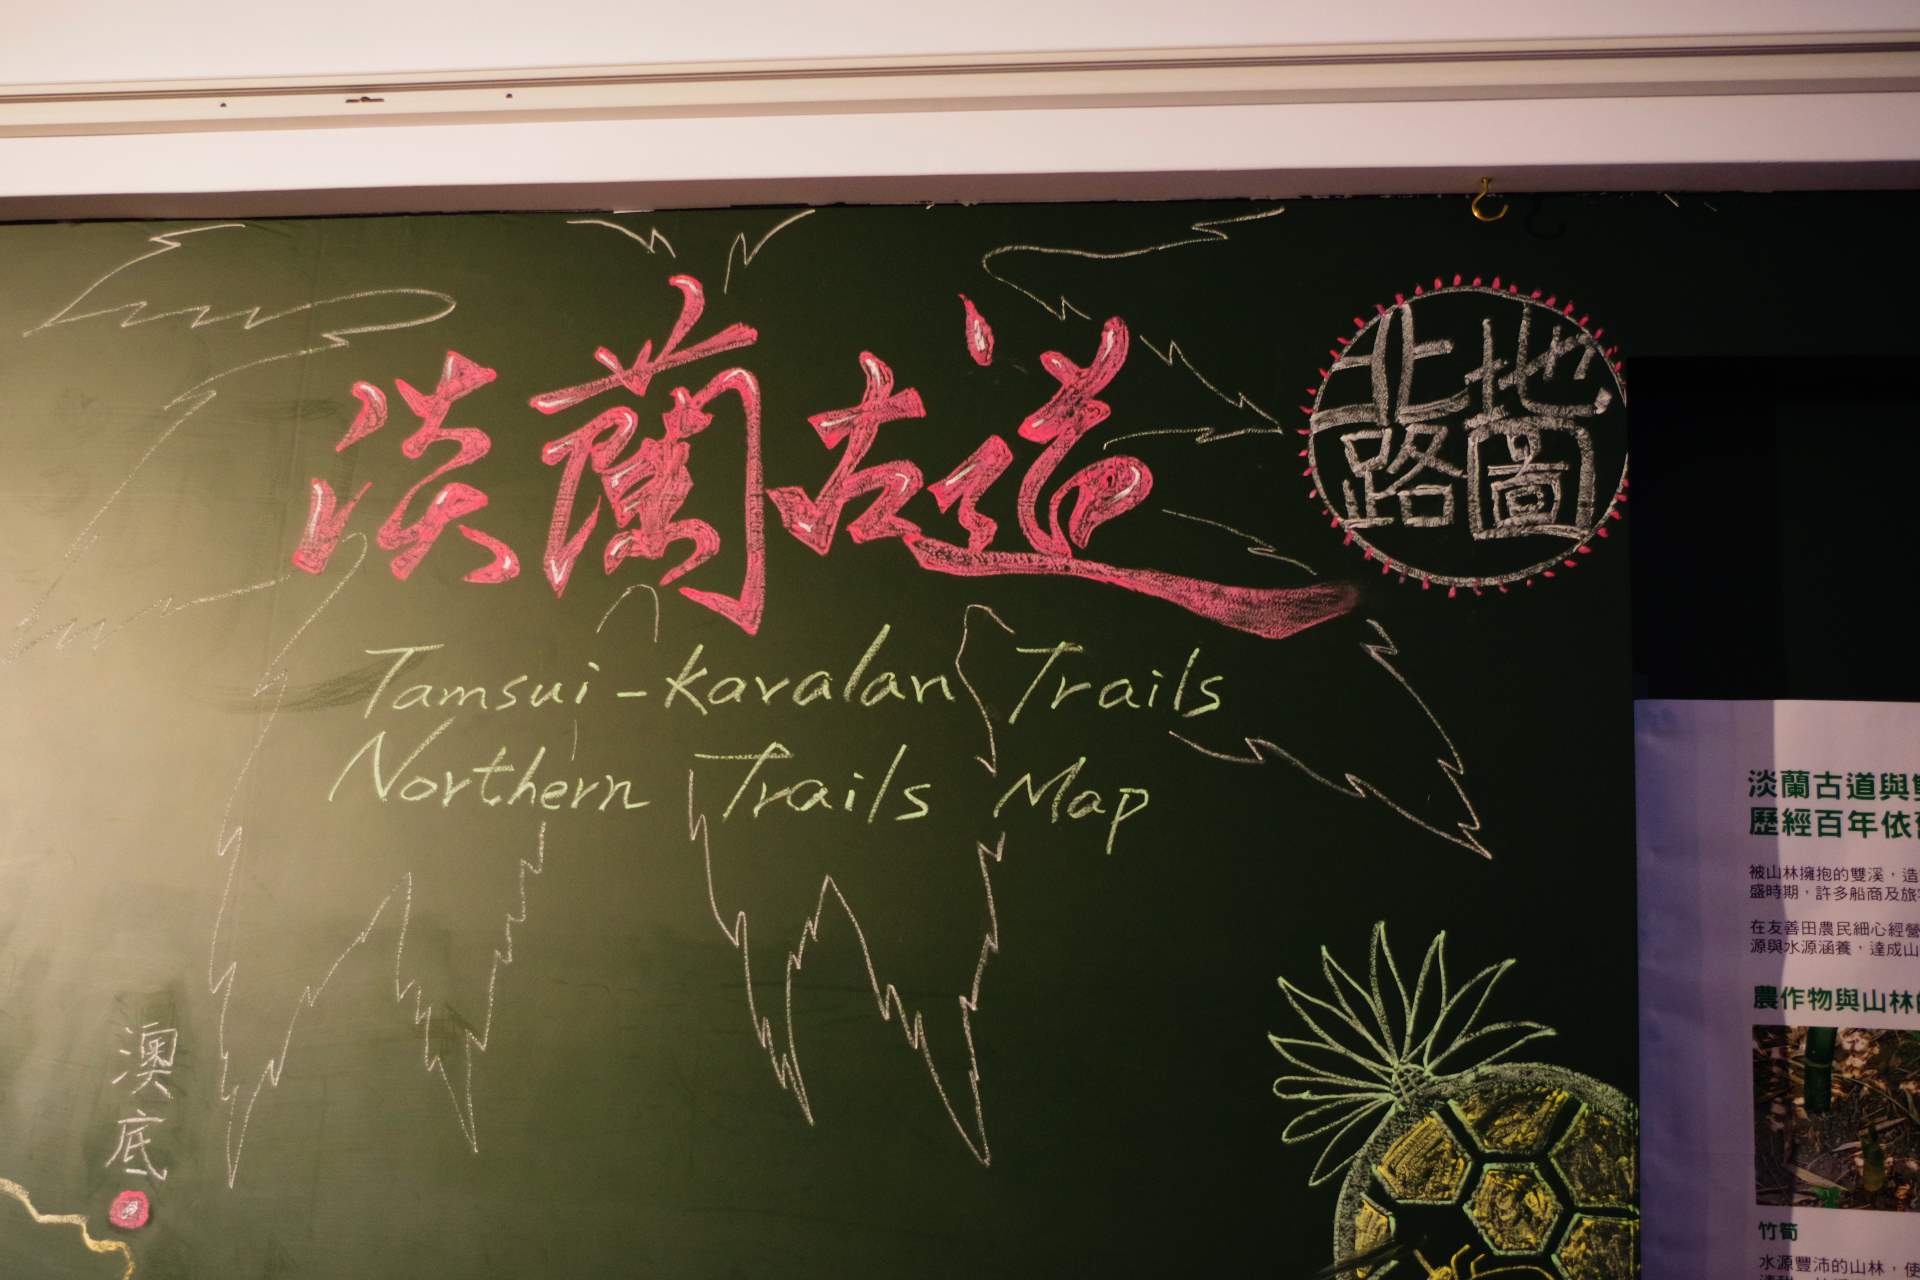 淡蘭古道
北路
地圖
Tamsui-Kavalan Trails
Northern Trails Map
澳底
淡蘭古道與
歷經百年依
被山林擁抱的雙溪，造
盛時期，許多船商及旅
在友善田農民細心經營
源與水源涵養，達成山
農作物與山林
竹筍
水源豐沛的山林，使